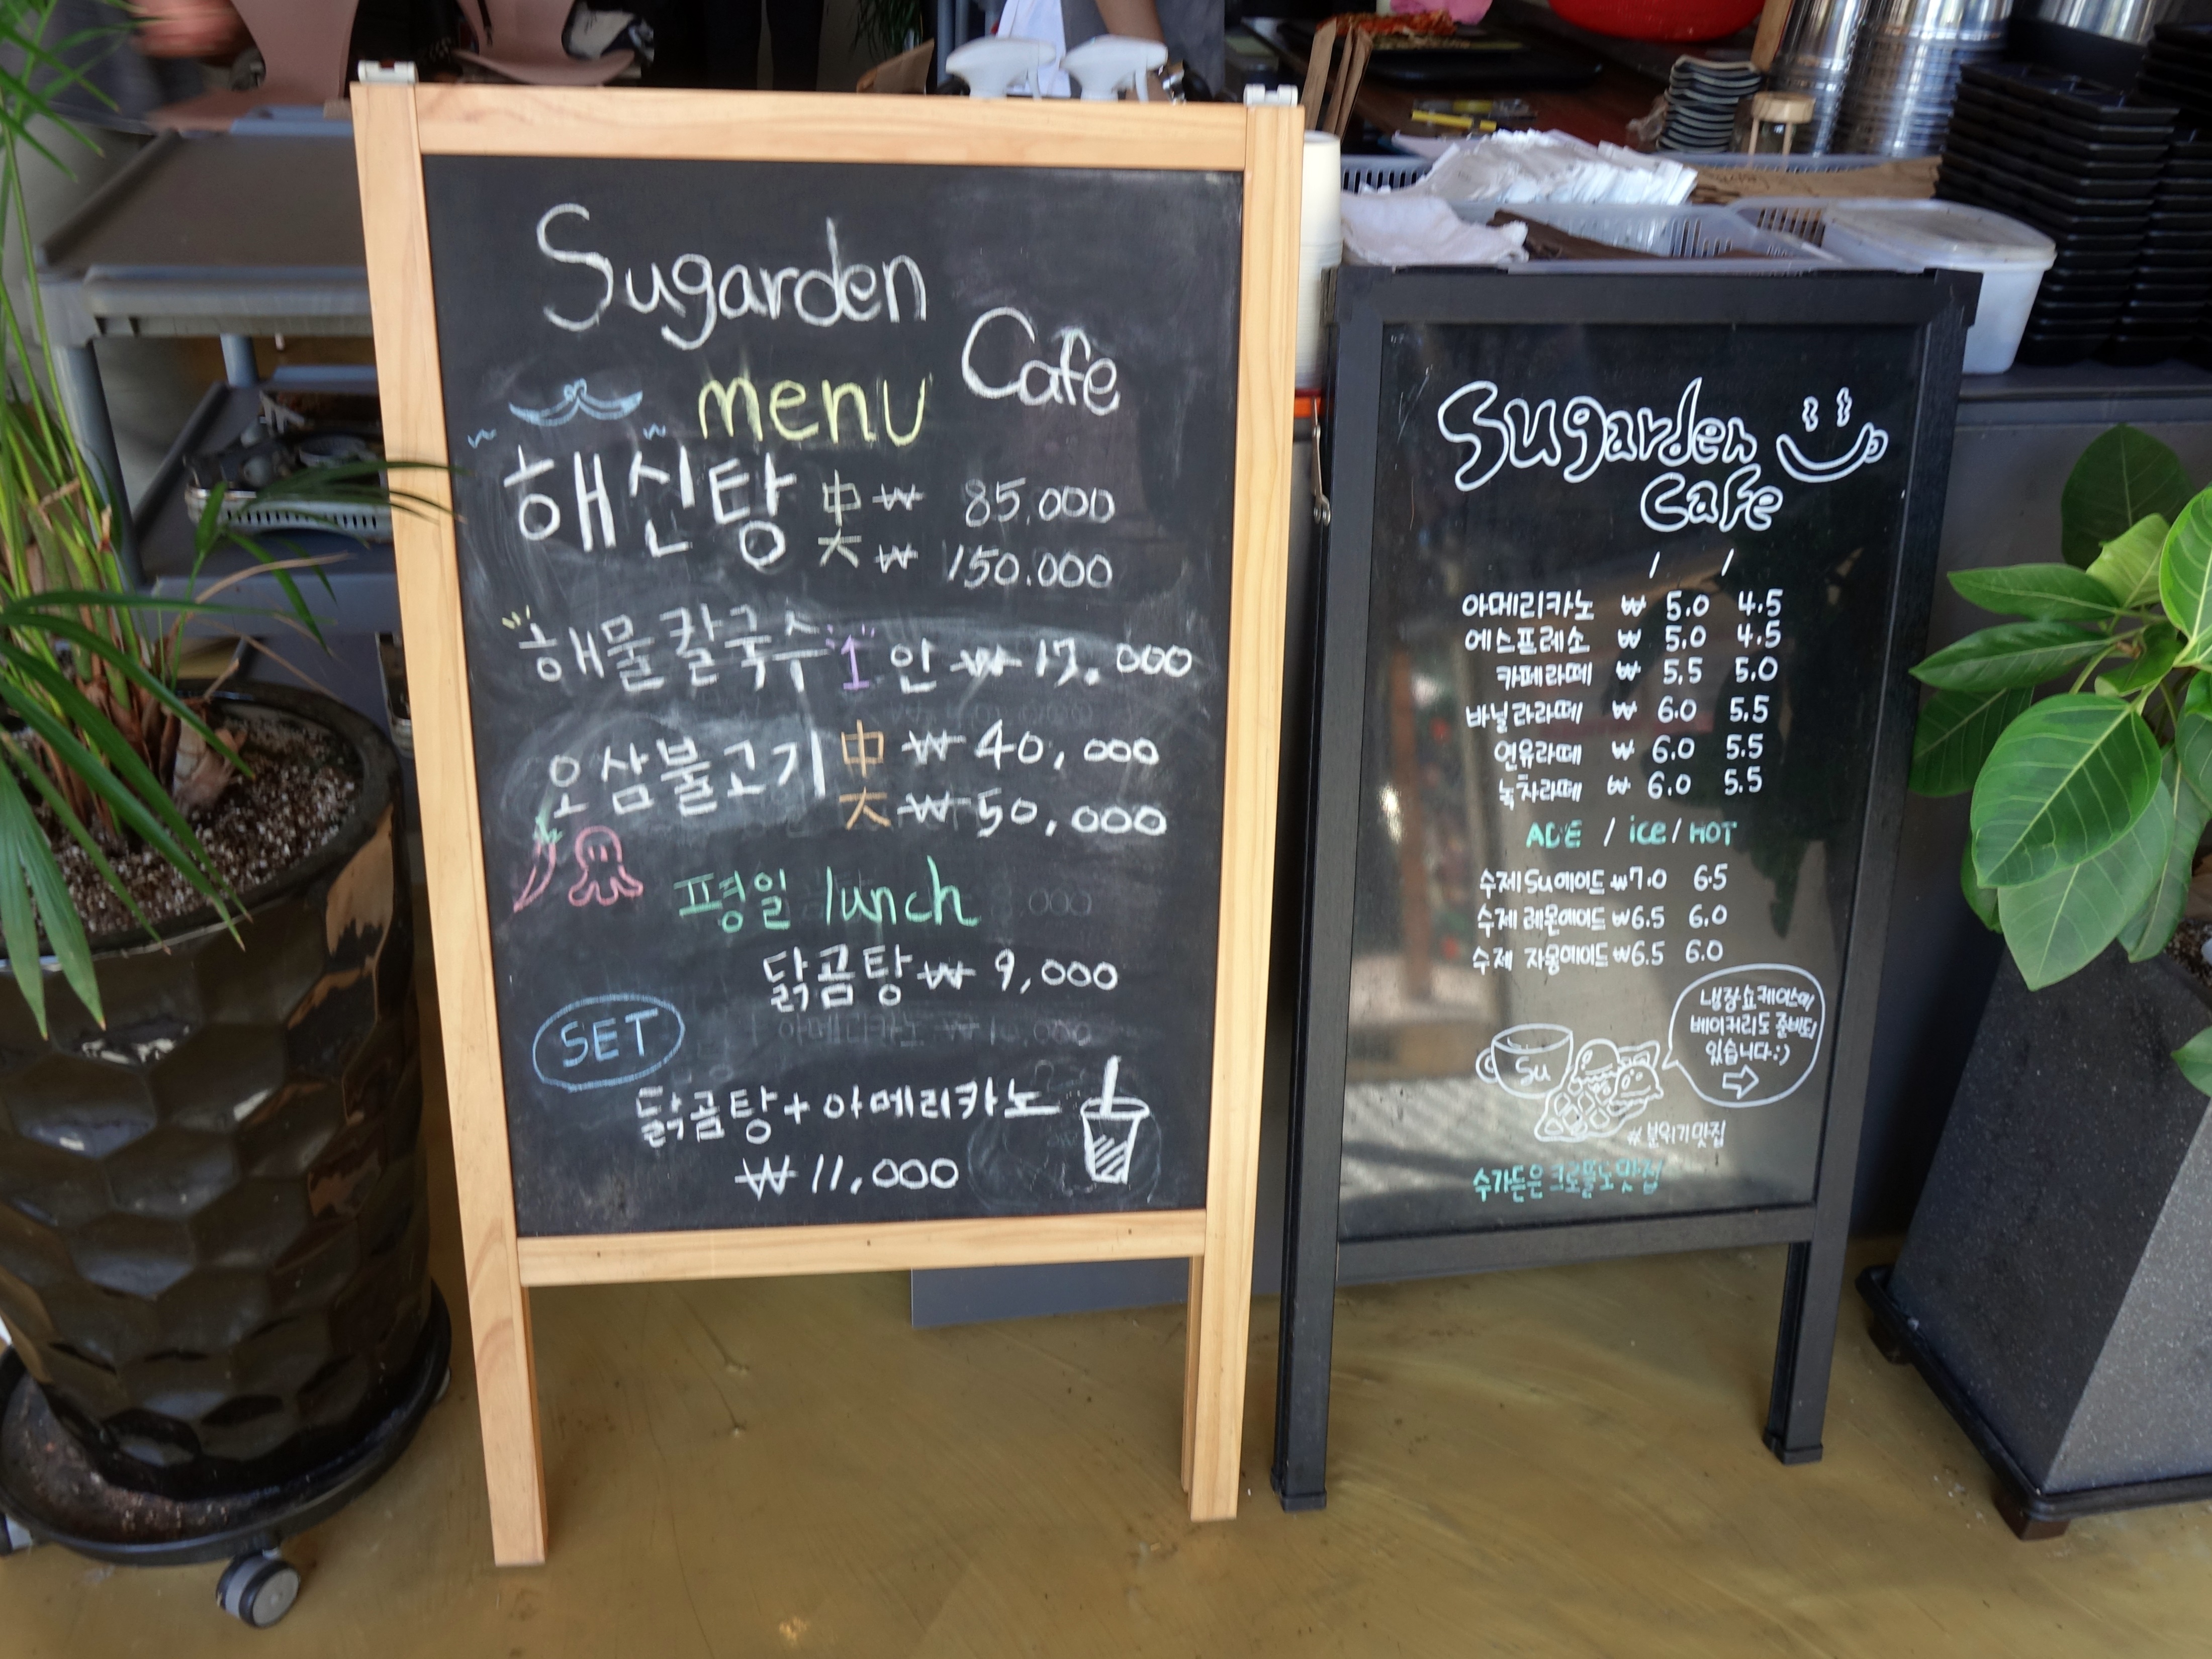 Sugarden
Cafe
menu
해신탕 中 ₩ 85.000
大 ₩ 150.000
해물칼국수 1인 ₩ 17.000
오삼불고기 中 ₩ 40,000
大 ₩ 50,000
평일 lunch
닭곰탕 ₩ 9,000
SET
닭곰탕 + 아메리카노
₩ 11,000
Sugarden
Cafe
/ /
아메리카노 ₩ 5.0 4.5
에스프레소 ₩ 5.0 4.5
카페라떼 ₩ 5.5 5.0
바닐라라떼 ₩ 6.0 5.5
연유라떼 ₩ 6.0 5.5
녹차라떼 ₩ 6.0 5.5
ADE / ice / HOT
수제 Su에이드 ₩7.0 6.5
수제 레몬에이드 ₩6.5 6.0
수제 자몽에이드 ₩6.5 6.0
냉장쇼케이스에
베이커리도 준비되
있습니다:)
Su
#분위기맛집
수가든은 크로플도 맛집